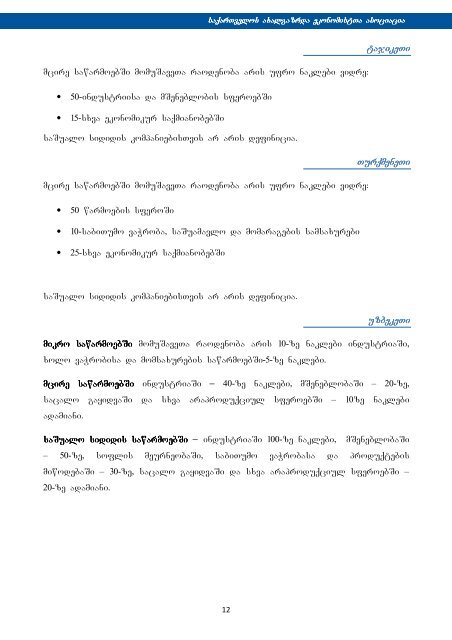 საქართველოს ახალგაზრდა ეკონომისტთა ასოციაცია
ტაჯიკეთი
მცირე საწარმოებში მომუშავეთა რაოდენობა არის უფრო ნაკლები ვიდრე:
• 50-ინდუსტრიისა და მშენებლობის სფეროებში
• 15-სხვა ეკონომიკურ საქმიანობებში
საშუალო სიდიდის კომპანიებისთვის არ არის დეფინიცია.
თურქმენეთი
მცირე საწარმოებში მომუშავეთა რაოდენობა არის უფრო ნაკლები ვიდრე:
• 50 წარმოების სფეროში
• 10-საბითუმო ვაჭრობა, საშუამავლო და მომარაგების სამსახურები
• 25-სხვა ეკონომიკურ საქმიანობებში
საშუალო სიდიდის კომპანიებისთვის არ არის დეფინიცია.
უზბეკეთი
მიკრო საწარმოებში მომუშავეთა რაოდენობა არის 10-ზე ნაკლები ინდუსტრიაში,
ხოლო ვაჭრობისა და მომსახურების საწარმოებში-5-ზე ნაკლები.
მცირე საწარმოებში ინდუსტრიაში – 40-ზე ნაკლები, მშენებლობაში – 20-ზე,
საცალო გაყიდვაში და სხვა არაპროდუქციულ სფეროებში – 10ზე ნაკლები
ადამიანი.
საშუალო სიდიდის საწარმოებში – ინდუსტრიაში 100-ზე ნაკლები, მშენებლობაში
– 50-ზე, სოფლის მეურნეობაში, საბითუმო ვაჭრობასა და პროდუქტების
მიწოდებაში – 30-ზე, საცალო გაყიდვაში და სხვა არაპროდუქციულ სფეროებში –
20-ზე ადამიანი.
12